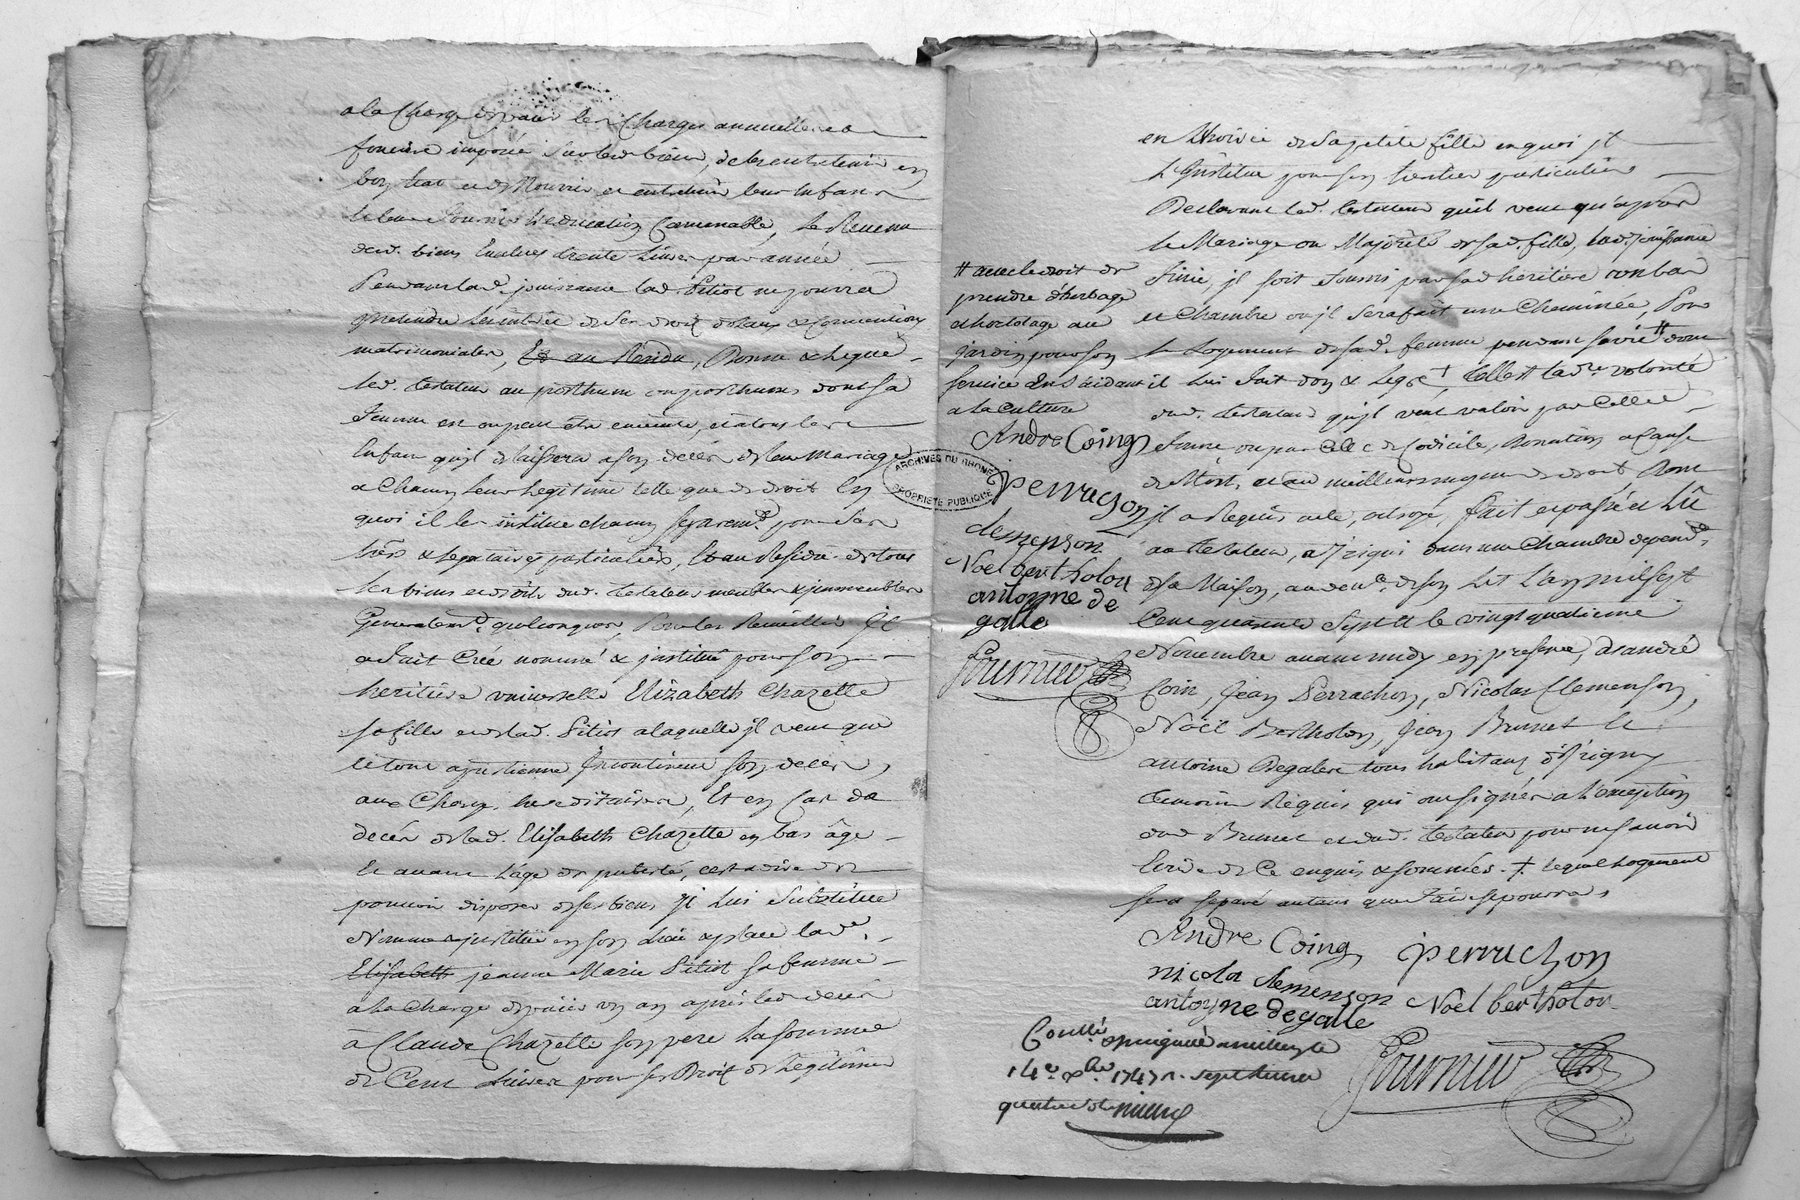 a la Charge de paier les Charges annuelles et
foncière imposée sur les biens, de les entretenir en
bon etat et de Nourrir et entretenir leurs Enfans
et leur fournir l'education Convenable, le Revenu
desd. biens Evalués trente Livres par année
Pendant lad. jouissance lad. Pitiot ne pourra
pretendre les intérêt de ses droit dotaux & Conventions
matrimoniales, Et au Rendu, Donne & Legue
led. testateur au posthume ou posthumes dont sa
femme est ou peut etre enceinte, et a tous les
Enfans qu'jl delaissera a son decès de leur Mariage
a Chacun leur Legitime telle que de droit En
quoi il les institue chacun separem.t pour ses
hers & legataires particuliers, Et au Residu de tous
les biens et droits dud. testateur meubles & jmmeubles
Generalem.t quelconques, Pour les Recueillir Jl
a fait Créé nommé & jnstitué pour son
heritière universelle Elizabeth Chazette
sa fille et de lad. Pitiot a laquelle jl veut que
le tout apartienne jncontinent son decès,
aux Charges hereditaires, Et en Cas de
decès de lad. Elisabeth Chazette en bas âge
et avant l'age de puberté, c'est a dire de
pouvoir disposer de ses biens jl Lui Substitue
Nomme & jnstitue en son Lieu & place lad.e
Elisabeth jeanne Marie Pitiot sa femme
a la Charge de paier un an après led. decès
à Claude Chazette son pere la somme
de Cent Livres pour ses Droit de Legitime
en hoirie de sa petite fille en quoi jl
L'jnstitue pour son heritier particulier
Declarant led. testateur qu'il veut qu'après
le Mariage ou Majorité de sad. fille, lad. jouissance
finie, jl soit fourni par sad. heritiere un bas
et Chambre ou jl sera fait une Cheminée, Pour
le Logement de sad. femme pendant sa vie # dont
il Lui fait don & Legs +, telle est la d.re volonté
dud. testateur qu'jl veut valoir par Celle
forme ou par Celle de Codicile, Donation a Cause
de Mort, et au meilleurs moyens de droit, Dont
jl a Requis acte, octroyé, fait et passé et Lû
au testateur, a Jrigni dans une Chambre depend.te
de sa Maison, au dev.t de son Lit L'an mil sept
Cent quarante Sept et le vingt quatrieme
Novembre avant midy en presence, de andré
Coin, Jean Perrachon, Nicolas Clemenson,
Noël Bertholon, Jean Brunet et
antoine Degalle tous habitans d'jrigny
temoins Requis qui ont signés a L'exception
dud. Brunet et dud. testateur pour ne savoir
Ecrire de Ce enquis & sommés. + lequel Logement
sera separé autant que faire se pourra,
# avec le droit de
prendre d'herbage
et hortolage au
jardin pour son
service En s'aidant
a la culture
Andre Coing
perrachon
clemenson
Noel bertholon
antoyne de
galle
Fournier
Andre Coing perrachon
nicola clemenson Noël bertholon
antoyne degalle
Fournier
Contllé
14e xbre 1747
ARCHIVES DU RHONE
PROPRIÉTÉ PUBLIQUE